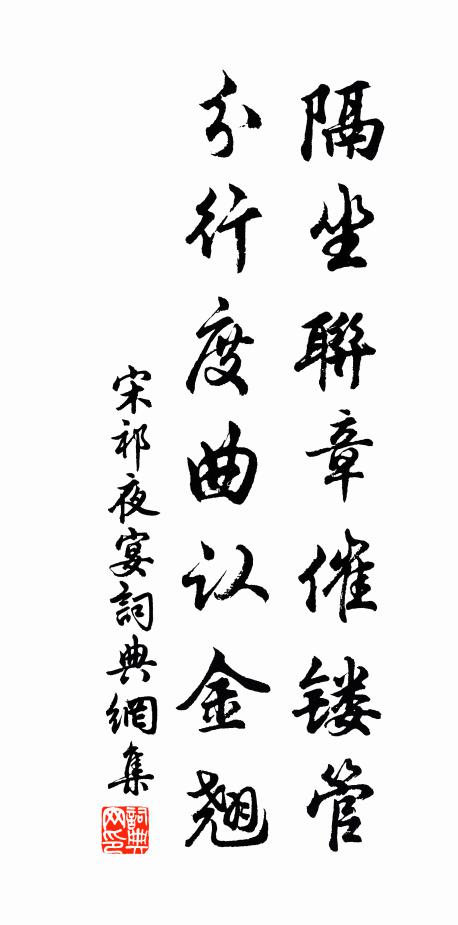 隔坐聯章催镂管
分行度曲认金翘
宋祁夜宴詞典網集
詞典网印